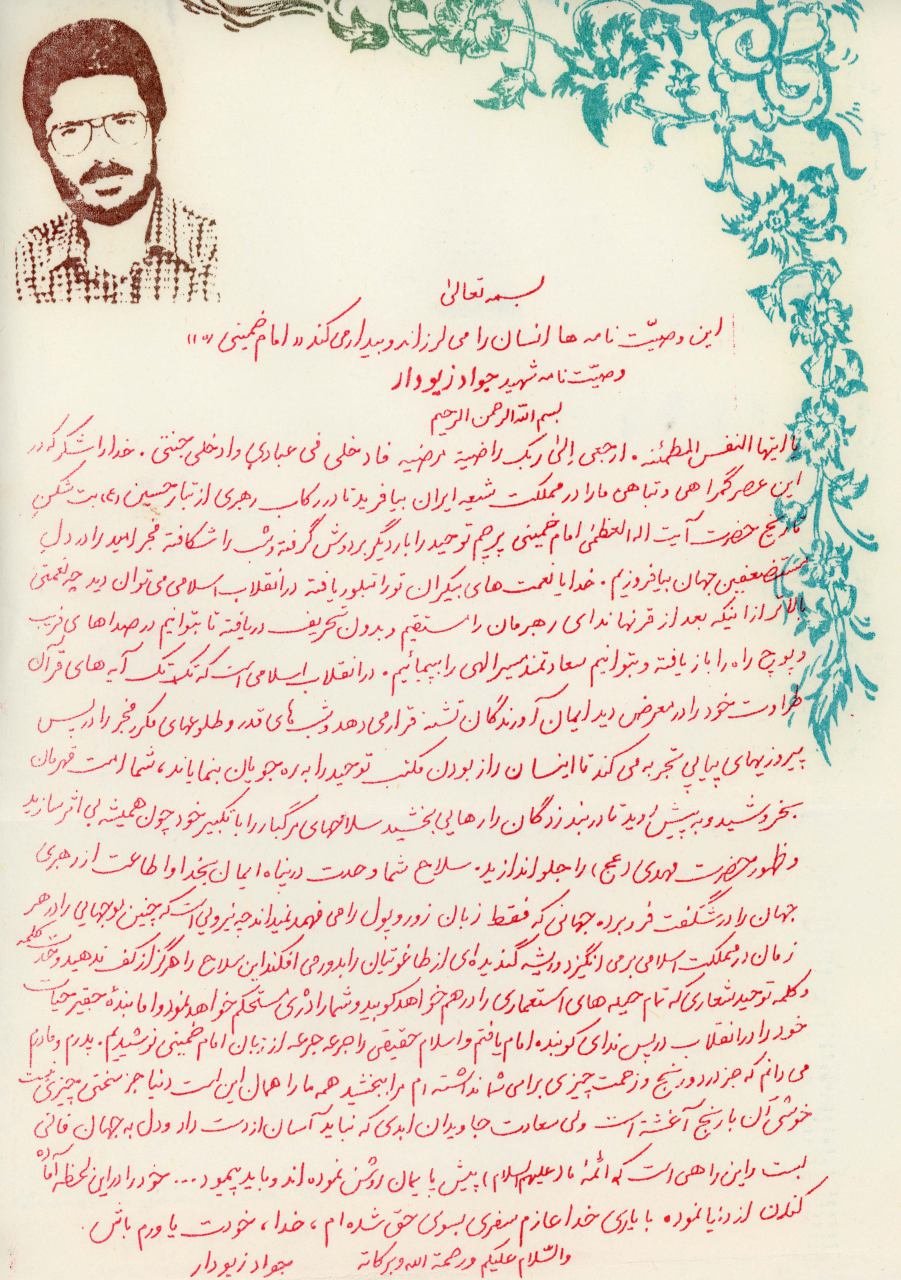 بسمه تعالیٰ
این وصیّت نامه ها انسان را می لرزاند و بیدار می کند «امام خمینی»
وصیّت نامه شهید جواد زیودار
بسم الله الرحمن الرحیم
یا ایتها النفس المطمئنه . ارجعی الیٰ ربک راضیة مرضیه فادخلی فی عبادی وادخلی جنتی . خدا را شکر که در
این عصر گمراهی و تباهی ما را در مملکت شیعه ایران بیافرید تا در رکاب رهبری از تبار حسین (ع) بت شکن
تاریخ حضرت آیت اله العظمیٰ امام خمینی پرچم توحید را بار دیگر بر دوش گرفته و شب را شکافته فجر امید را در دل
مستضعفین جهان بیافروزیم . خدایا نعمت های بیکران تو را تبلور یافته در انقلاب اسلامی می توان دید چه نعمتی
بالاتر از اینکه بعد از قرنها ندای رهبرمان را مستقیم و بدون تحریف دریافته تا بتوانیم در صداهای فریب
و پوچ راه را باز یافته و بتوانیم سعادتمند مسیر الهی را بپیمائیم . در انقلاب اسلامی است که تک تک آیه های قرآن
طراوت خود را در معرض دید ایمان آورندگان تشنه قرار می دهد و شب های قدر و طلوعهای مکرر فجر را در پس
پیروزیهای پیاپی تجربه می کند تا انسان راز بودن مکتب توحید را به ره جویان بنمایاند ، شما امت قهرمان
بخروشید و به پیش روید تا دربند زدگان را رهایی بخشید سلاحهای مرگبار را با تکبیر خود چون همیشه بی اثر سازید
و ظهور حضرت مهدی (عج) را جلو اندازید . سلاح شما وحدت در پناه ایمان بخدا و اطاعت از رهبری
جهان را در شگفت فرو برده جهانی که فقط زبان زور و پول را می فهمد نمیداند چه نیرویی است که چنین پوجهایی را در هر
زمان در مملکت اسلامی بر می انگیزد و ریشه گندیده ای از طاغوتیان را بدور می افکند این سلاح را هرگز از کف ندهید وحدت کلمه
و کلمه توحید شعاری که تمام حیله های استعماری را در هم خواهد کوبید و شما را دژی مستحکم خواهد نمود و اما بندهٔ حقیر حیات
خود را در انقلاب در پس ندای کوبنده امام یافتم و اسلام حقیقی را جرعه جرعه از زبان امام خمینی نوشیدیم . پدرم و مادرم
می دانم که جز درد و رنج و زحمت چیزی برای شما نداشته ام مرا ببخشید همه ما را همان این است دنیا جز سختی چیزی نیست
خوشی آن با رنج آغشته است ولی سعادت جاویدان ابدی که نباید آسان از دست داد و دل به جهان فانی
بست و این راهی است که ائمهٔ ما (علیهم السلام) پیش پایمان روشن نموده اند و باید پیمود ... خود را در این لحظه آماده
کندن از دنیا نموده با یاری خدا عازم سفری بسوی حق شده ام ، خدا ، خودت یاورم باش .
والسّلام علیکم و رحمة الله و برکاته
جواد زیودار